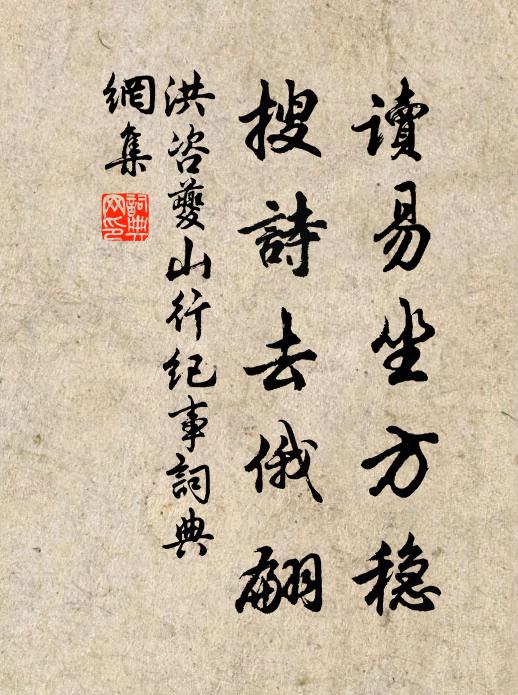 讀易坐方穏
搜詩去俄翩
洪咨夔山行纪事詞典
網集
詞典
网印